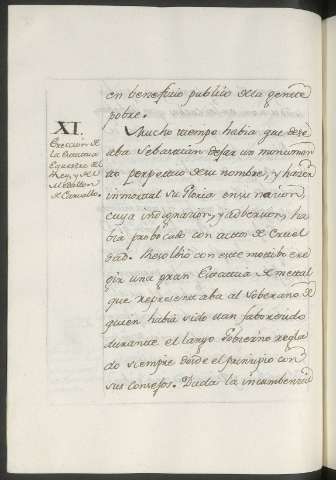 en beneficio publico de la gente
pobre.
XI.
Ereccion de
la Estatua
Equestre del
Rey, y del
Medallon
de Carvallo.
Mucho tiempo habia que dese
aba Sebastian dejar un monumen
to perpetuo de su nombre, y hacer
inmortal su Gloria en su nacion,
cuya indignacion, y adversion, ha
bia probocado con actos de Cruel
dad. Resolbio con este motibo ere
gir una gran Estatua de metal
que representaba al Soberano de
quien habia sido tan faborecido
durante el largo Gobierno regla
do siempre desde el principio con
sus consejos. Dada la incumbencia